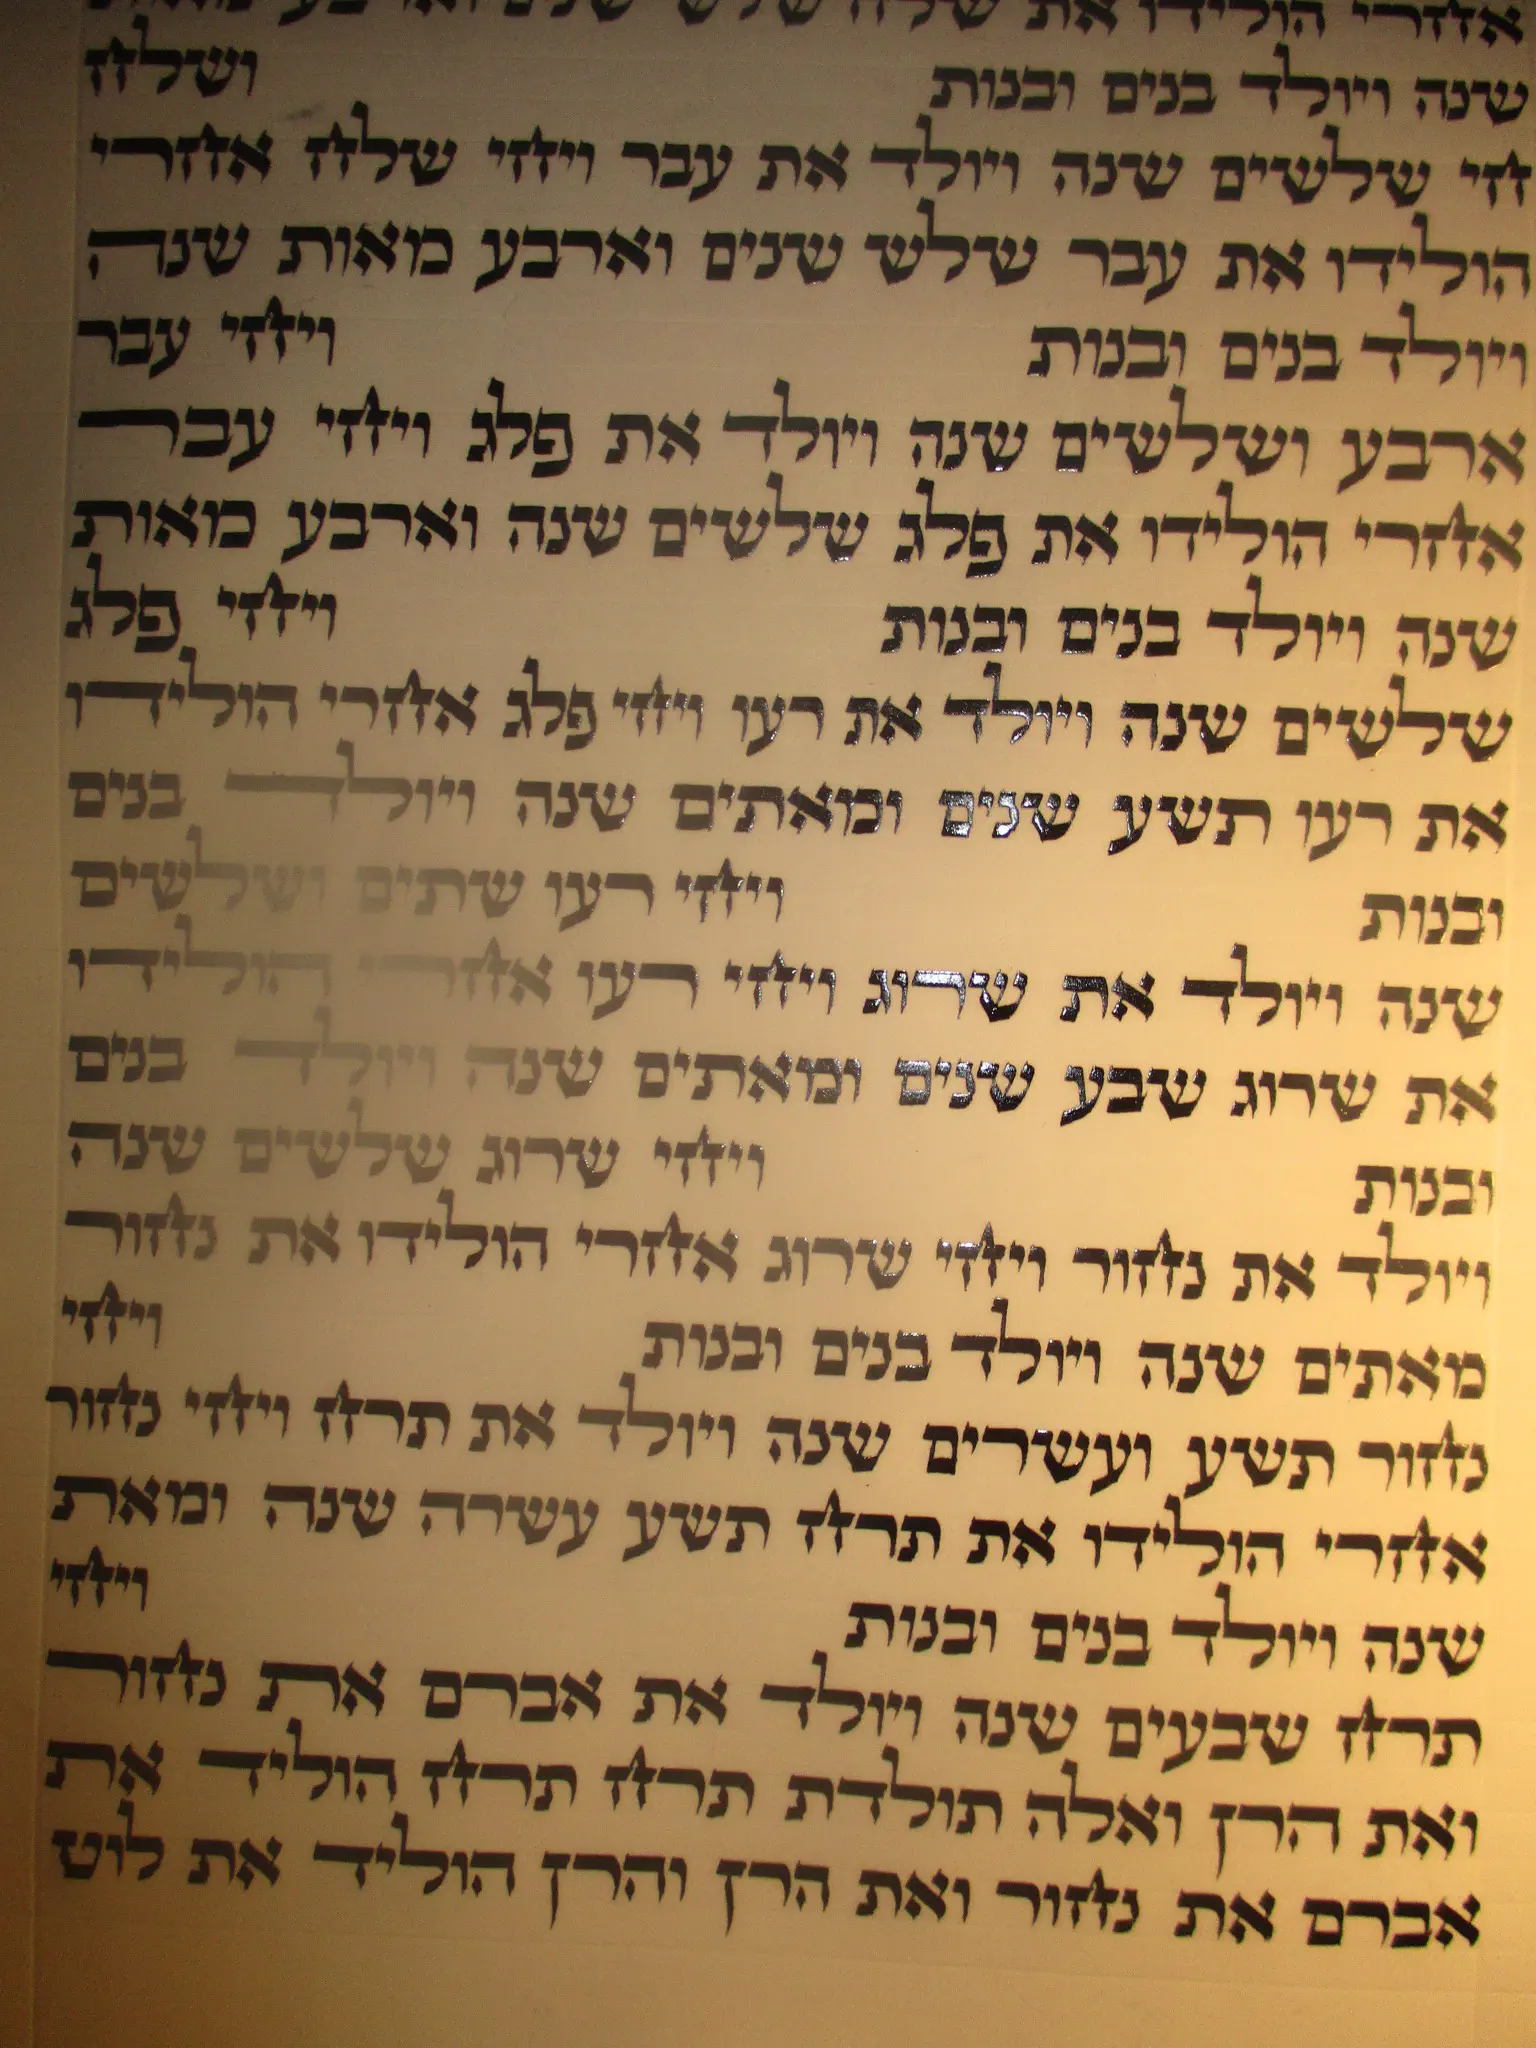 אחרי הולידו את שלח שלש שנים וארבע מאות
שנה ויולד בנים ובנות ושלח
חי שלשים שנה ויולד את עבר ויחי שלח אחרי
הולידו את עבר שלש שנים וארבע מאות שנה
ויולד בנים ובנות ויחי עבר
ארבע ושלשים שנה ויולד את פלג ויחי עבר
אחרי הולידו את פלג שלשים שנה וארבע מאות
שנה ויולד בנים ובנות ויחי פלג
שלשים שנה ויולד את רעו ויחי פלג אחרי הולידו
את רעו תשע שנים ומאתים שנה ויולד בנים
ובנות ויחי רעו שתים ושלשים
שנה ויולד את שרוג ויחי רעו אחרי הולידו
את שרוג שבע שנים ומאתים שנה ויולד בנים
ובנות ויחי שרוג שלשים שנה
ויולד את נחור ויחי שרוג אחרי הולידו את נחור
מאתים שנה ויולד בנים ובנות ויחי
נחור תשע ועשרים שנה ויולד את תרח ויחי נחור
אחרי הולידו את תרח תשע עשרה שנה ומאת
שנה ויולד בנים ובנות ויחי
תרח שבעים שנה ויולד את אברם את נחור
ואת הרן ואלה תולדת תרח תרח הוליד את
אברם את נחור ואת הרן והרן הוליד את לוט